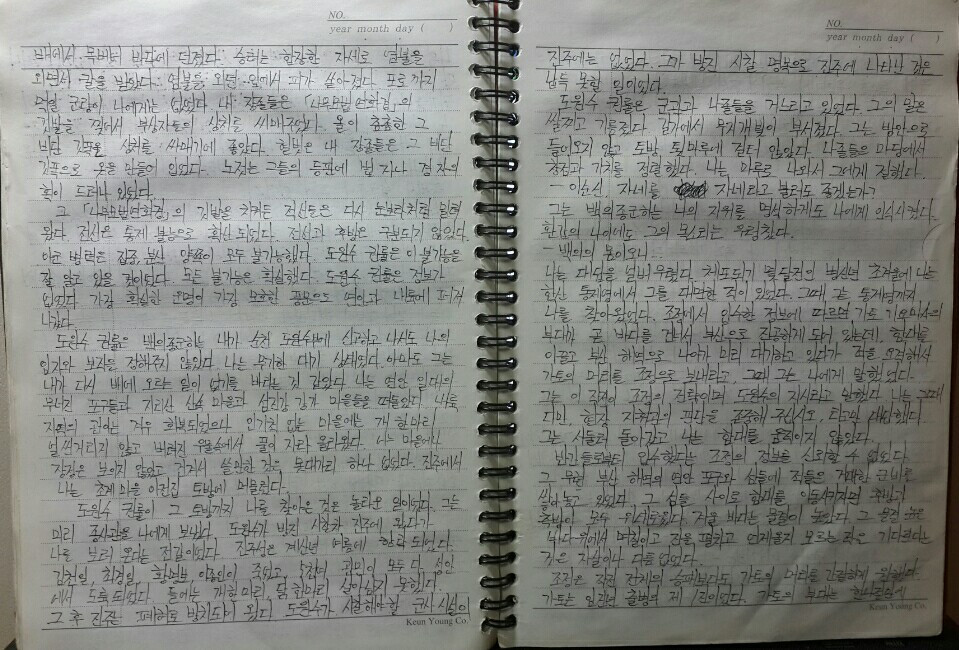 NO.
year month day (     )
배에서 목베어 바다에 던졌다. 승려는 합장한 자세로 염불을
외면서 칼을 받았다. 염불을 외던 입에서 피가 쏟아졌다. 포로까지
먹일 군량이 나에게는 없었다. 내 장졸들은 「나무묘법연화경」의
깃발을 찢어서 부상자들의 상처를 싸매주었다. 올이 촘촘한 그
비단 깃폭은 상처를 싸매기에 좋았다. 헐벗은 내 장졸들은 그 비단
깃폭으로 옷을 만들어 입었다. 노젓는 그들의 등판에 法 자나 經 자의
획이 드러나 있었다.
그 「나무묘법연화경」의 깃발을 치켜든 적선들은 다시 눈보라처럼 밀려
왔다. 전선은 통제 불능으로 확산되었다. 전선과 후방은 구분되지 않았다.
아군 병력은 집중, 분산 양쪽이 모두 불가능했다. 도원수 권률은 이 불가능을
잘 알고 있을 것이었다. 모든 불가능은 확실했다. 도원수 권률은 정보가
없었다. 가장 확실한 운명이 가장 모호한 풍문으로 연안과 내륙에 퍼져
나갔다.
도원수 권률은 백의종군하는 내가 순천 도원수에 신고하고 나서도 나의
위치와 보직을 정해주지 않았다. 나는 무기한 대기 상태였다. 아마도 그는
내가 다시 배에 오르는 일이 없기를 바라는 것 같았다. 나는 연안 일대의
무너진 포구들과 지리산 산속 마을과 섬진강 강가 마을들을 떠돌았다. 나룻
개 한 마리
얼씬거리지 않고 버려진 우물 속에서 풀이 자라 올라왔다. 나는 마을에서
장정은 보이지 않았고 거기서 쓸만한 것은 몽둥이 하나 없었다. 진주에서
나는 초계 마을 아전집 토방에 머물렀다.
도원수 권률이 그 토방까지 나를 찾아온 것은 놀라운 일이었다. 그는
미리 종사관을 나에게 보냈다. 도원수가 방진 시찰차 진주에 왔다가
나를 보러 온다는 전갈이었다. 진주성은 계사년 여름에 함락되었다.
김천일, 최경회, 황진, 이종인이 죽었고, 성안의 군민이 모두 다 성안
에서 도륙되었다. 들에는 개 한 마리, 닭 한 마리 살아남지 못했다.
그 후 진주는 폐허로 방치되어 왔다. 도원수가 시찰해야 할 군사 시설이
Keun Young Co.
NO.
year month day (     )
진주에는 없었다. 그가 방진 시찰 명목으로 진주에 나타난 것은
납득 못할 일이었다.
도원수 권률은 군관과 나졸들을 거느리고 있었다. 그의 말은
살찌고 기름졌다. 말갈기에서 무지개빛이 부서졌다. 그는 방안으로
들어오지 않고 토방 툇마루에 걸터 앉았다. 나졸들은 마당에서
창검과 기치를 정렬했다. 나는 마루로 나와서 그에게 절했다.
- 이순신, 자네를 자네라고 불러도 좋겠는가?
그는 백의종군하는 나의 지위를 명석하게도 나에게 인식시켰다.
환갑의 나이에도, 그의 목소리는 우렁찼다.
- 백의의 몸이오니...
나는 대답을 얼버무렸다. 체포되기 몇달전의 병신년 초겨울에 나는
한산 통제영에서 그를 대면한 적이 있었다. 그때 그는 통제영까지
나를 찾아왔었다. 조정에서 입수한 정보에 따르면 가토 기요마사의
부대가 곧 바다를 건너서 부산으로 진공하게 되어 있는데, 함대를
이끌고 부산 해역으로 나아가 미리 대기하고 있다가 적을 요격해서
가토의 머리를 조정으로 보내라고, 그때 그는 나에게 말했었다.
그는 이 작전이 조정의 전략이며 도원수의 지시라고 말했다. 나는 그때
다만, 현장 지휘관의 판단을 존중해 주십시오, 라고만 대답했다.
그는 서둘러 돌아갔고 나는 함대를 움직이지 않았다.
반간들로부터 입수했다는 조정의 정보를 신뢰할 수 없었다.
그 무렵 부산 해역의 연안 포구와 섬들에 적들은 거대한 군비로
쌓아놓고 있었다. 그 섬들 사이로 함대를 이동시키자면 후방과
측방이 모두 위태로웠다. 겨울 바다는 물결이 높았다. 그 물결 높은
바다 위에서 며칠이고 진을 펼치고 언제 올지 모르는 적을 기다린다는
것은 자살이나 다름 없었다.
조정은 작전 전체의 승패보다도 가토의 머리를 간절하게 원했다.
가토는 임진년 출병의 제1진이었다. 가토의 부대는 한성진공에
Keun Young Co.